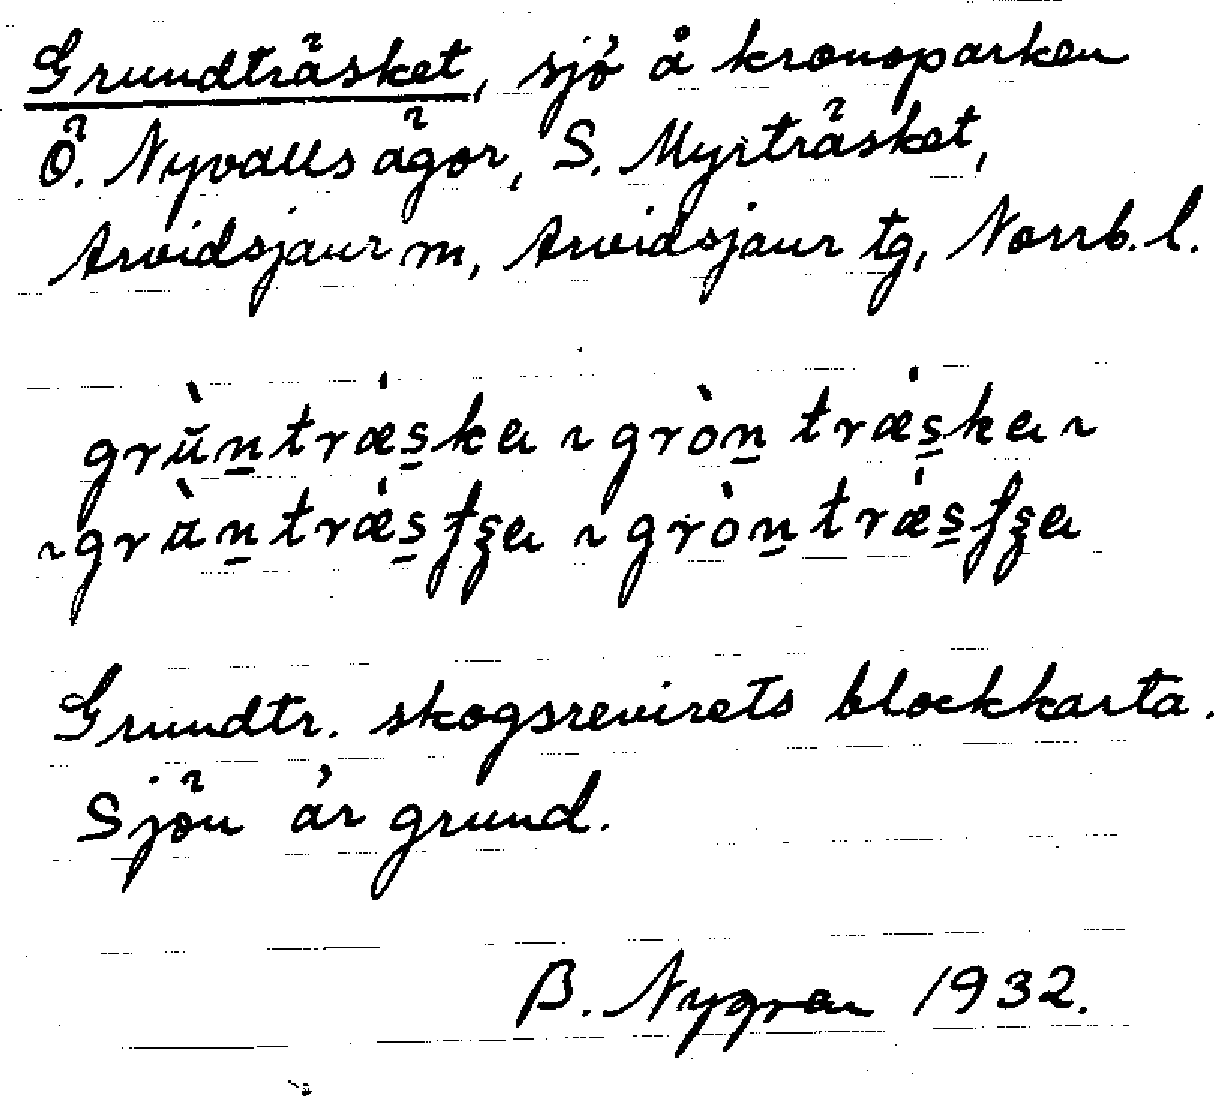 Grundträsket, sjö å kronoparken
Ö. Nyvalls ägor, S. Myrträsket,
Arvidsjaur m, Arvidsjaur tg, Norrb. l.
grùn̠træ̍s̠ka ~ gròn̠ træ̍s̠ka ~
~ gràn̠træ̍s̠ʃʒa ~ gròn̠træ̍s̠ʃʒa
Grundtr. skogsrevirets blockkarta.
Sjön är grund.
B. Nygren 1932.